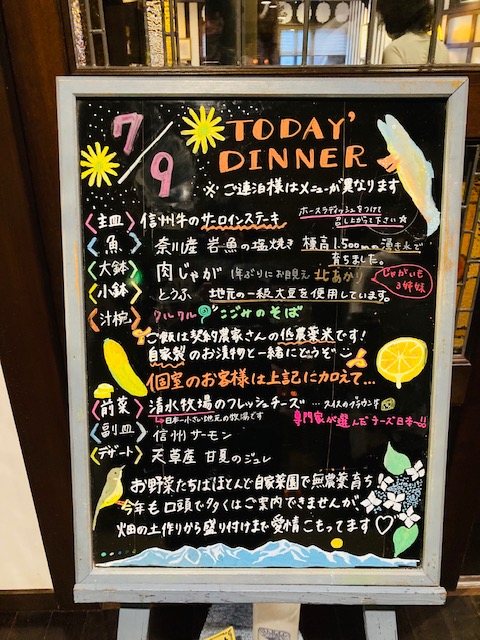 7/9
TODAY'
DINNER
※ご連泊様はメニューが異なります
〈主皿〉信州牛のサーロインステーキ
ホースラディッシュをつけて
召し上がって下さい☆
〈魚〉奈川産 岩魚の塩焼き 標高1,500mの湧き水で
育ちました。
〈大鉢〉肉じゃが 1年ぶりにお目見え 北あかり
じゃがいも
3姉妹
〈小鉢〉とうふ 地元の一級大豆を使用しています。
〈汁椀〉クルクル こごみのそば
ご飯は契約農家さんの低農薬米です!
自家製のお漬物と一緒にどうぞ
個室のお客様は上記に加えて…
〈前菜〉清水牧場のフレッシュチーズ…スイスのブラウン牛
→日本一小さい牧場です
専門家が選んだチーズ日本一!!
〈副皿〉信州サーモン
〈デザート〉天草産 甘夏のジュレ
お野菜たちはほとんど自家菜園で無農薬育ち
今年も口頭で多くはご案内できませんが
畑の土作りから盛り付けまで愛情こもってます♡